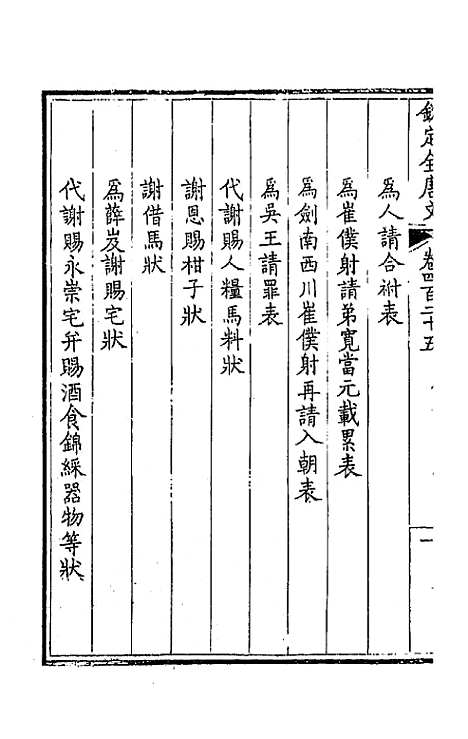 欽定全唐文 卷四百二十五 一
爲人請合祔表
爲崔僕射請弟寬當元載累表
爲劍南西川崔僕射再請入朝表
爲吳王請罪表
代謝賜人糧馬料狀
謝恩賜柑子狀
謝借馬狀
爲薛岌謝賜宅狀
代謝賜永崇宅幷賜酒食錦綵器物等狀